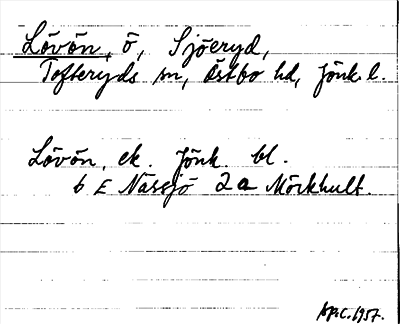 Lövön, ö, Sjöeryd,
Tofteryds sn, Östbo hd, Jönk. l.
Lövön, ek. Jönk. bl.
6 E Nässjö 2a Mörkhult.
1957.